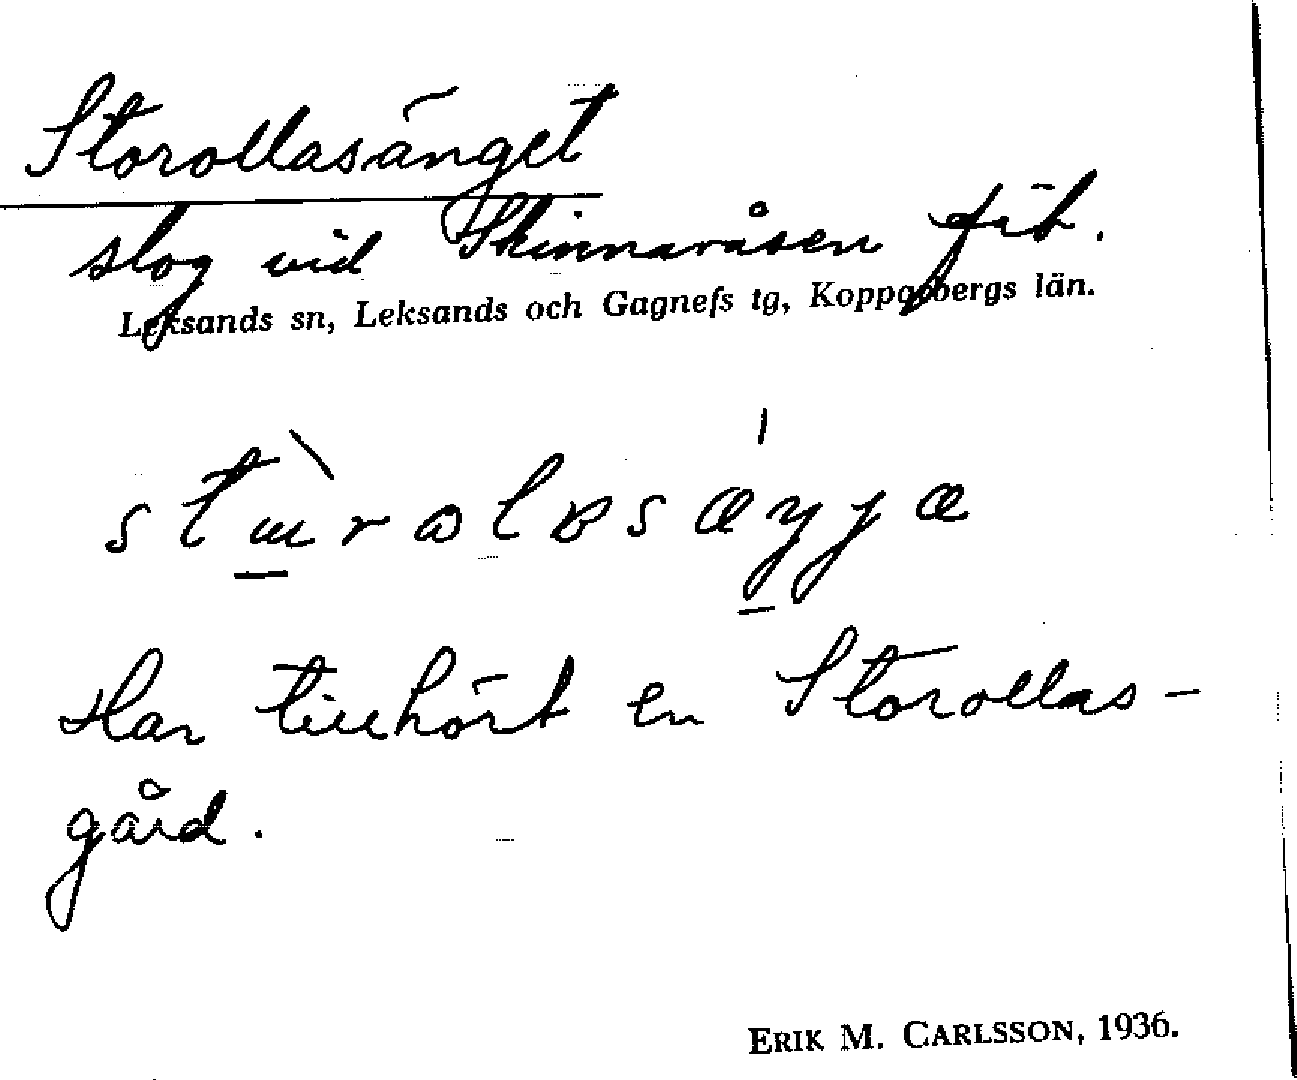 Storollasänget
slog vid Skinnaråsen fäb.
Leksands sn, Leksands och Gagnefs tg, Kopparbergs län.
Har tillhört en Storollas-
gård.
ERIK M. CARLSSON, 1936.